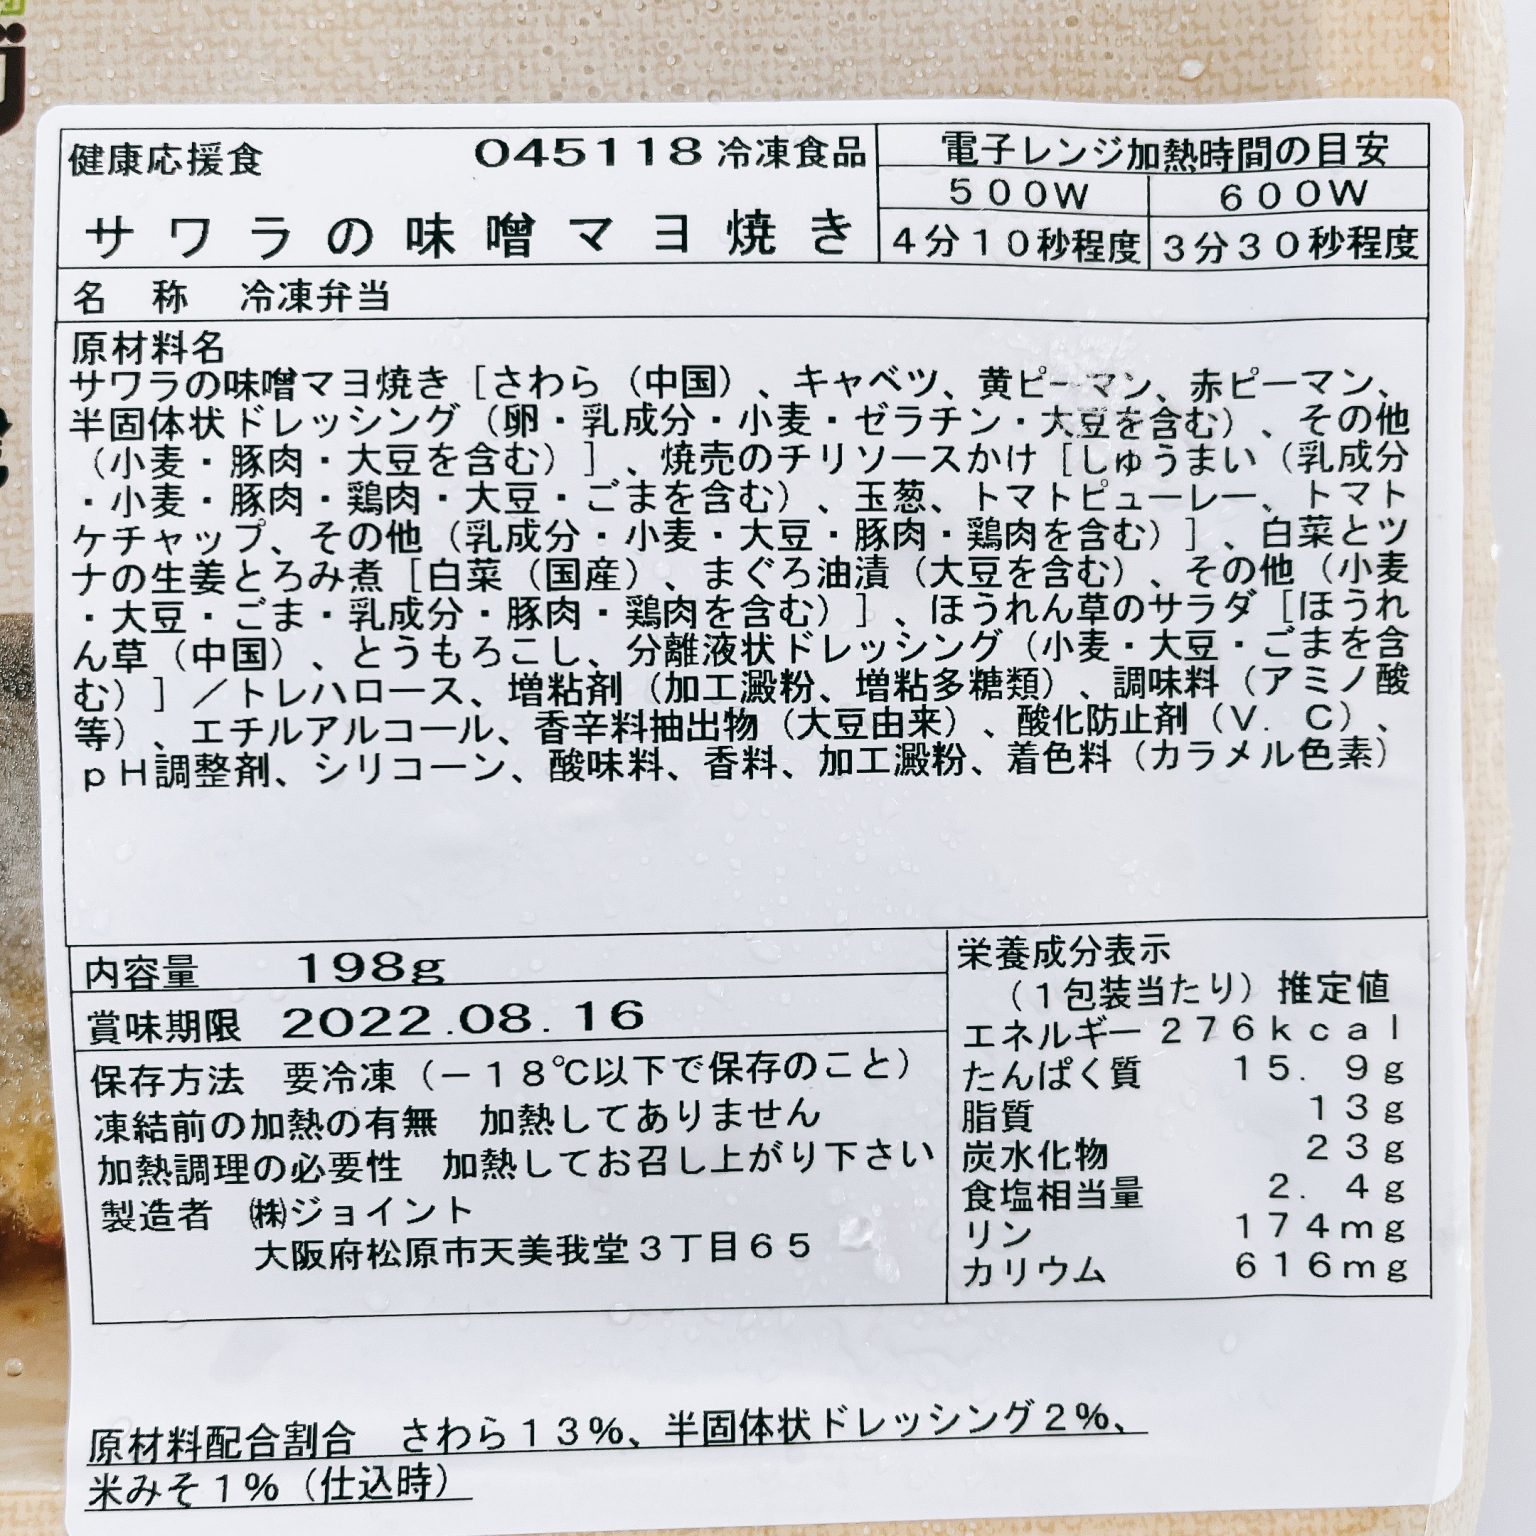 健康応援食 045118 冷凍食品
サワラの味噌マヨ焼き
電子レンジ加熱時間の目安
500W 600W
4分10秒程度 3分30秒程度
名 称 冷凍弁当
原材料名
サワラの味噌マヨ焼き[さわら(中国)、キャベツ、黄ピーマン、赤ピーマン、
半固体状ドレッシング(卵・乳成分・小麦・ゼラチン・大豆を含む)、その他
(小麦・豚肉・大豆を含む)]、焼売のチリソースかけ[しゅうまい(乳成分
・小麦・豚肉・鶏肉・大豆・ごまを含む)、玉葱、トマトピューレー、トマト
ケチャップ、その他(乳成分・小麦・大豆・豚肉・鶏肉を含む)]、白菜とツ
ナの生姜とろみ煮[白菜(国産)、まぐろ油漬(大豆を含む)、その他(小麦
・大豆・ごま・乳成分・豚肉・鶏肉を含む)]、ほうれん草のサラダ[ほうれ
ん草(中国)、とうもろこし、分離液状ドレッシング(小麦・大豆・ごまを含
む)]/トレハロース、増粘剤(加工澱粉、増粘多糖類)、調味料(アミノ酸
等)、エチルアルコール、香辛料抽出物(大豆由来)、酸化防止剤(V.C)、
pH調整剤、シリコーン、酸味料、香料、加工澱粉、着色料(カラメル色素)
内容量 198g
賞味期限 2022.08.16
保存方法 要冷凍(−18℃以下で保存のこと)
凍結前の加熱の有無 加熱してありません
加熱調理の必要性 加熱してお召し上がり下さい
製造者 ㈱ジョイント
大阪府松原市天美我堂3丁目65
栄養成分表示
(1包装当たり)推定値
エネルギー 276kcal
たんぱく質 15.9g
脂質 13g
炭水化物 23g
食塩相当量 2.4g
リン 174mg
カリウム 616mg
原材料配合割合 さわら13%、半固体状ドレッシング2%、
米みそ1%(仕込時)